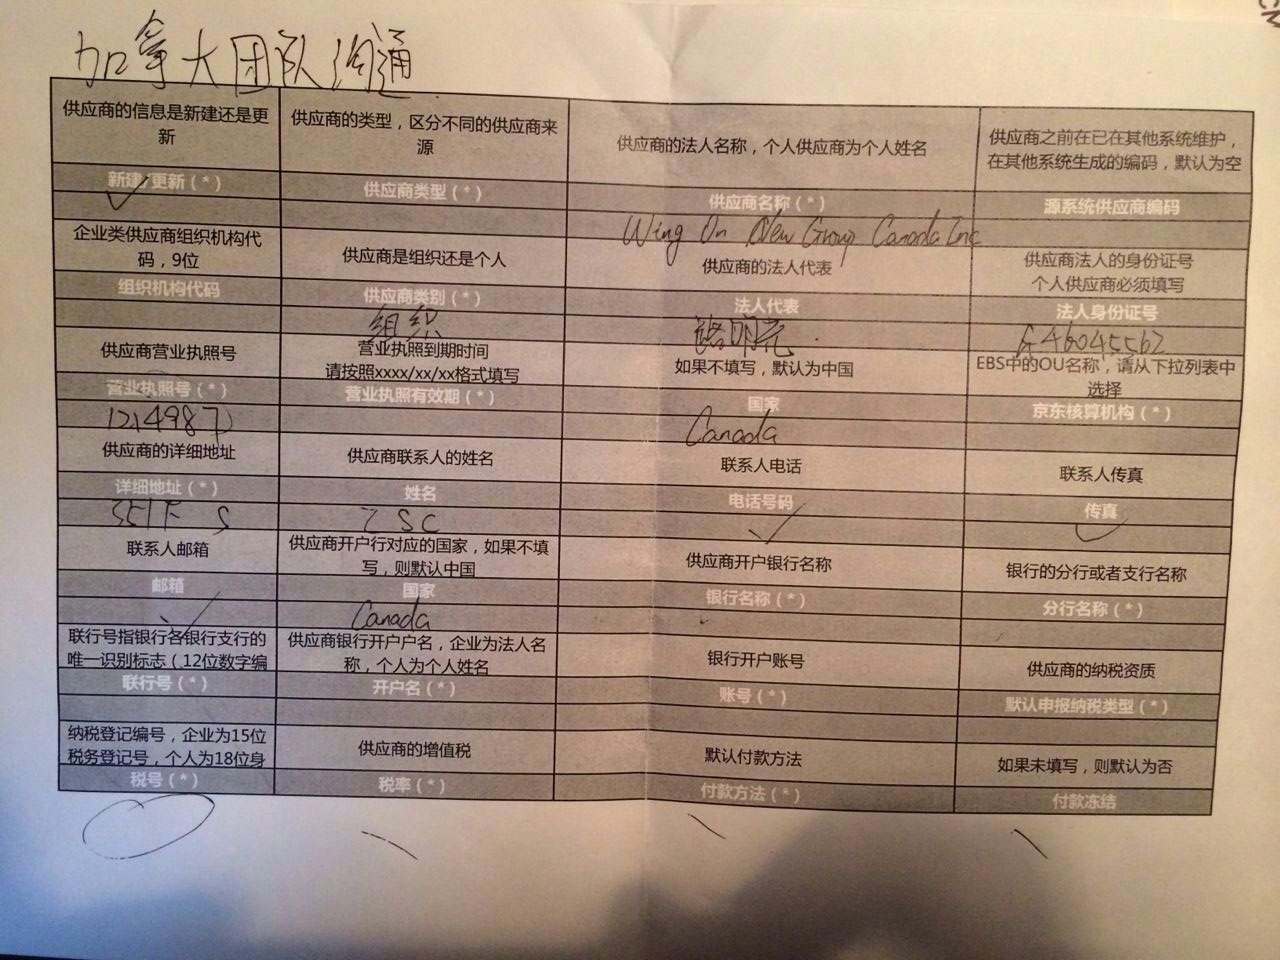 加拿大团队沟通
供应商的信息是新建还是更新
供应商的类型，区分不同的供应商来源
供应商的法人名称，个人供应商为个人姓名
供应商之前在已在其他系统维护，在其他系统生成的编码，默认为空
新建/更新（*）
供应商类型（*）
供应商名称（*）
源系统供应商编码
Wing On New Group Canada Inc
企业类供应商组织机构代码，9位
供应商是组织还是个人
供应商的法人代表
供应商法人的身份证号
个人供应商必须填写
组织机构代码
供应商类别（*）
法人代表
法人身份证号
组织
供应商营业执照号
营业执照到期时间
请按照xxxx/xx/xx格式填写
如果不填写，默认为中国
EBS中的OU名称，请从下拉列表中选择
营业执照号（*）
营业执照有效期（*）
国家
京东核算机构（*）
Canada
供应商的详细地址
供应商联系人的姓名
联系人电话
联系人传真
详细地址（*）
姓名
电话号码
传真
联系人邮箱
供应商开户行对应的国家，如果不填写，则默认中国
供应商开户银行名称
银行的分行或者支行名称
邮箱
国家
银行名称（*）
分行名称（*）
Canada
联行号指银行各银行支行的
唯一识别标志（12位数字编
供应商银行开户户名，企业为法人名称，个人为个人姓名
银行开户账号
供应商的纳税资质
联行号（*）
开户名（*）
账号（*）
默认申报纳税类型（*）
纳税登记编号，企业为15位
税务登记号，个人为18位身
供应商的增值税
默认付款方法
如果未填写，则默认为否
税号（*）
税率（*）
付款方法（*）
付款冻结